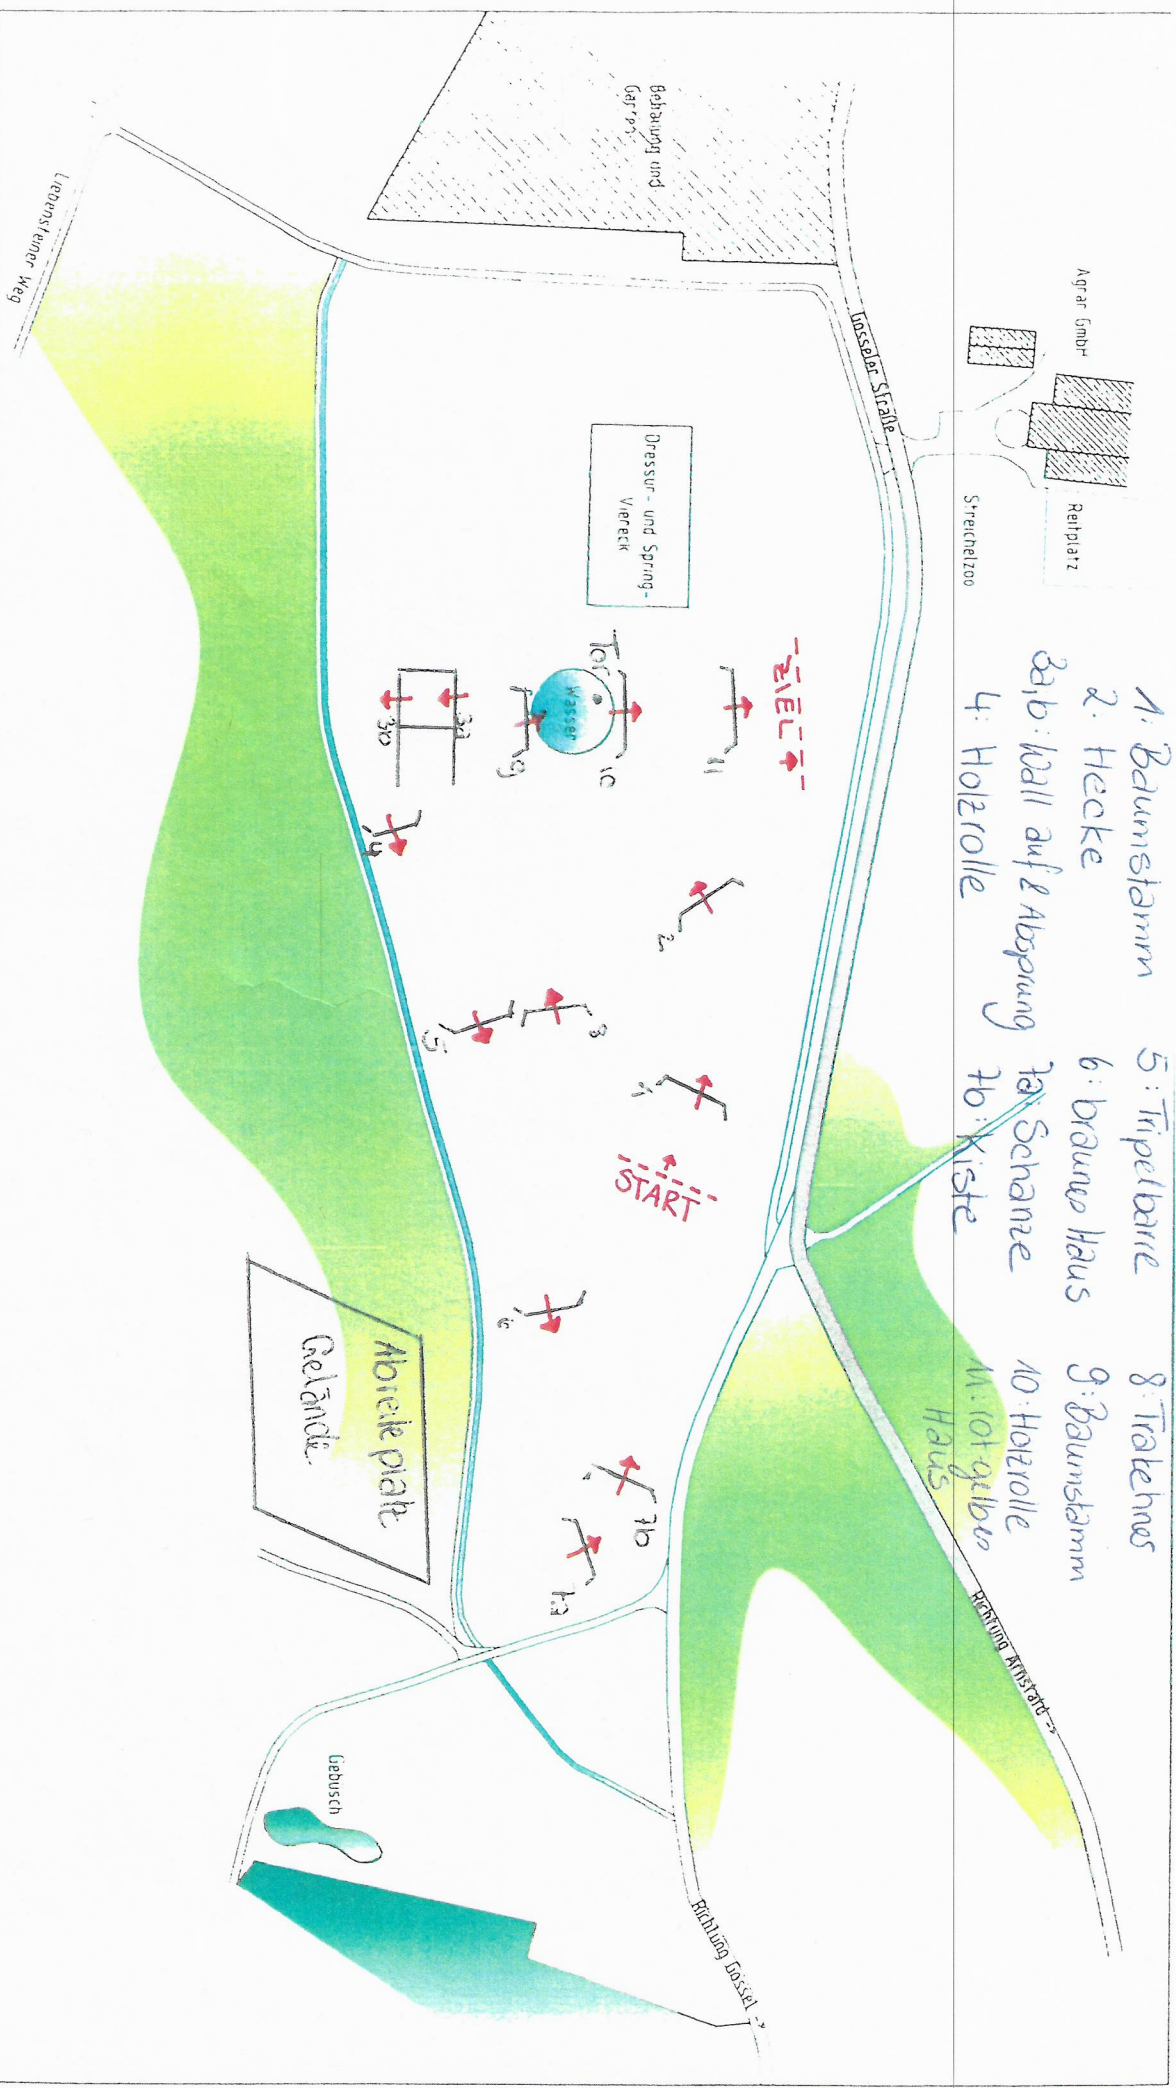 1. Baumstamm
2. Hecke
3a,b: Wall auf & Absprung
4: Holzrolle
5: Tripelbarre
6: braunes Haus
7a: Schanze
7b: Kiste
8: Trakehner
9: Baumstamm
10: Holzrolle
11: rotgelbes
Haus
Agrar GmbH
Reitplatz
Streichelzoo
Gosseler Straße
Richtung Arnstadt →
Bebauung und
Liebensteiner Weg
Dressur- und Spring-
Viereck
ZIEL
11
Tor
Wasser
10
9
3a
3b
4
2
8
5
1
START
6
7b
7a
Abreiteplatz
Gelände
Gebüsch
Richtung Gossel →